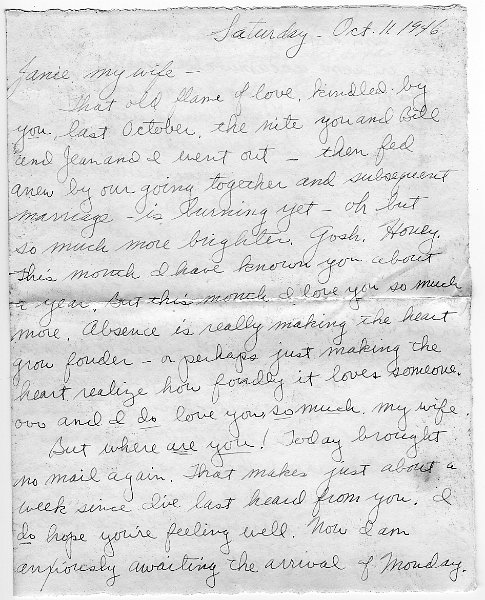 Saturday - Oct. 11 1946
Janie my wife --
That old flame of love, kindled by
you, last October, the nite you and Bill
and Jean and I went out - then fed
anew by our going together and subsequent
marriage - is burning yet - oh but
so much more brighter. Gosh, Honey.
This month I have known you about
a year. But this month I love you so much
more. Absence is really making the heart
grow fonder - or perhaps just making the
heart realize how fondly it loves someone.
and I do love you, so much, my wife.
But where are you! Today brought
no mail again. That makes just about a
week since I've last heard from you. I
do hope you're feeling well. Now I am
anxiously awaiting the arrival of Monday.